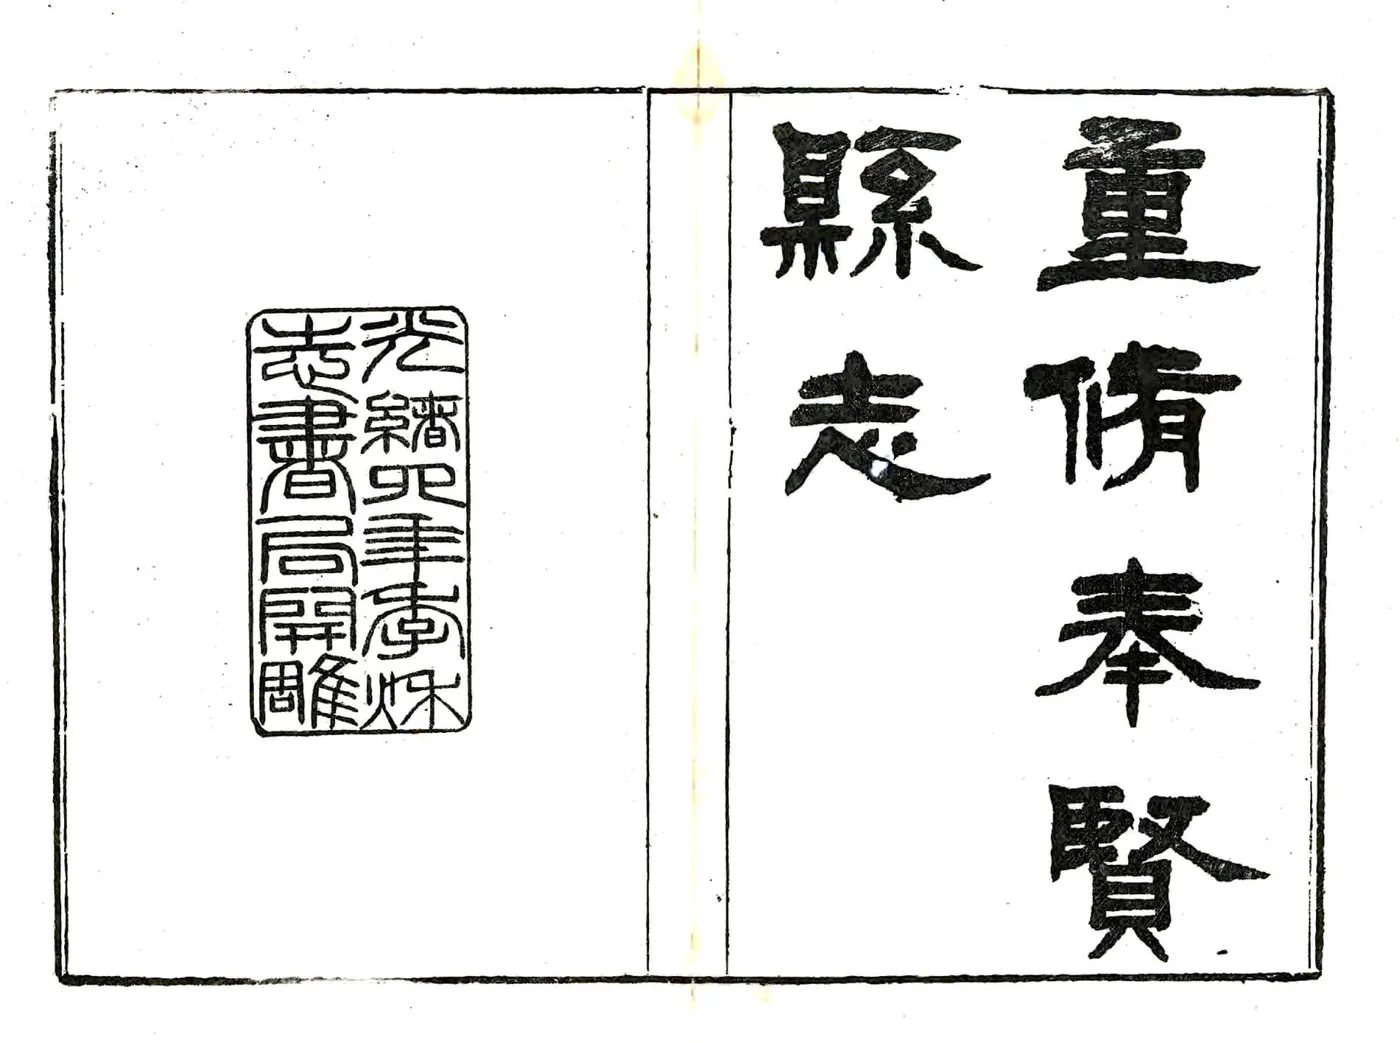 重脩奉賢
縣志
光緒四年季秌
志書局開雕